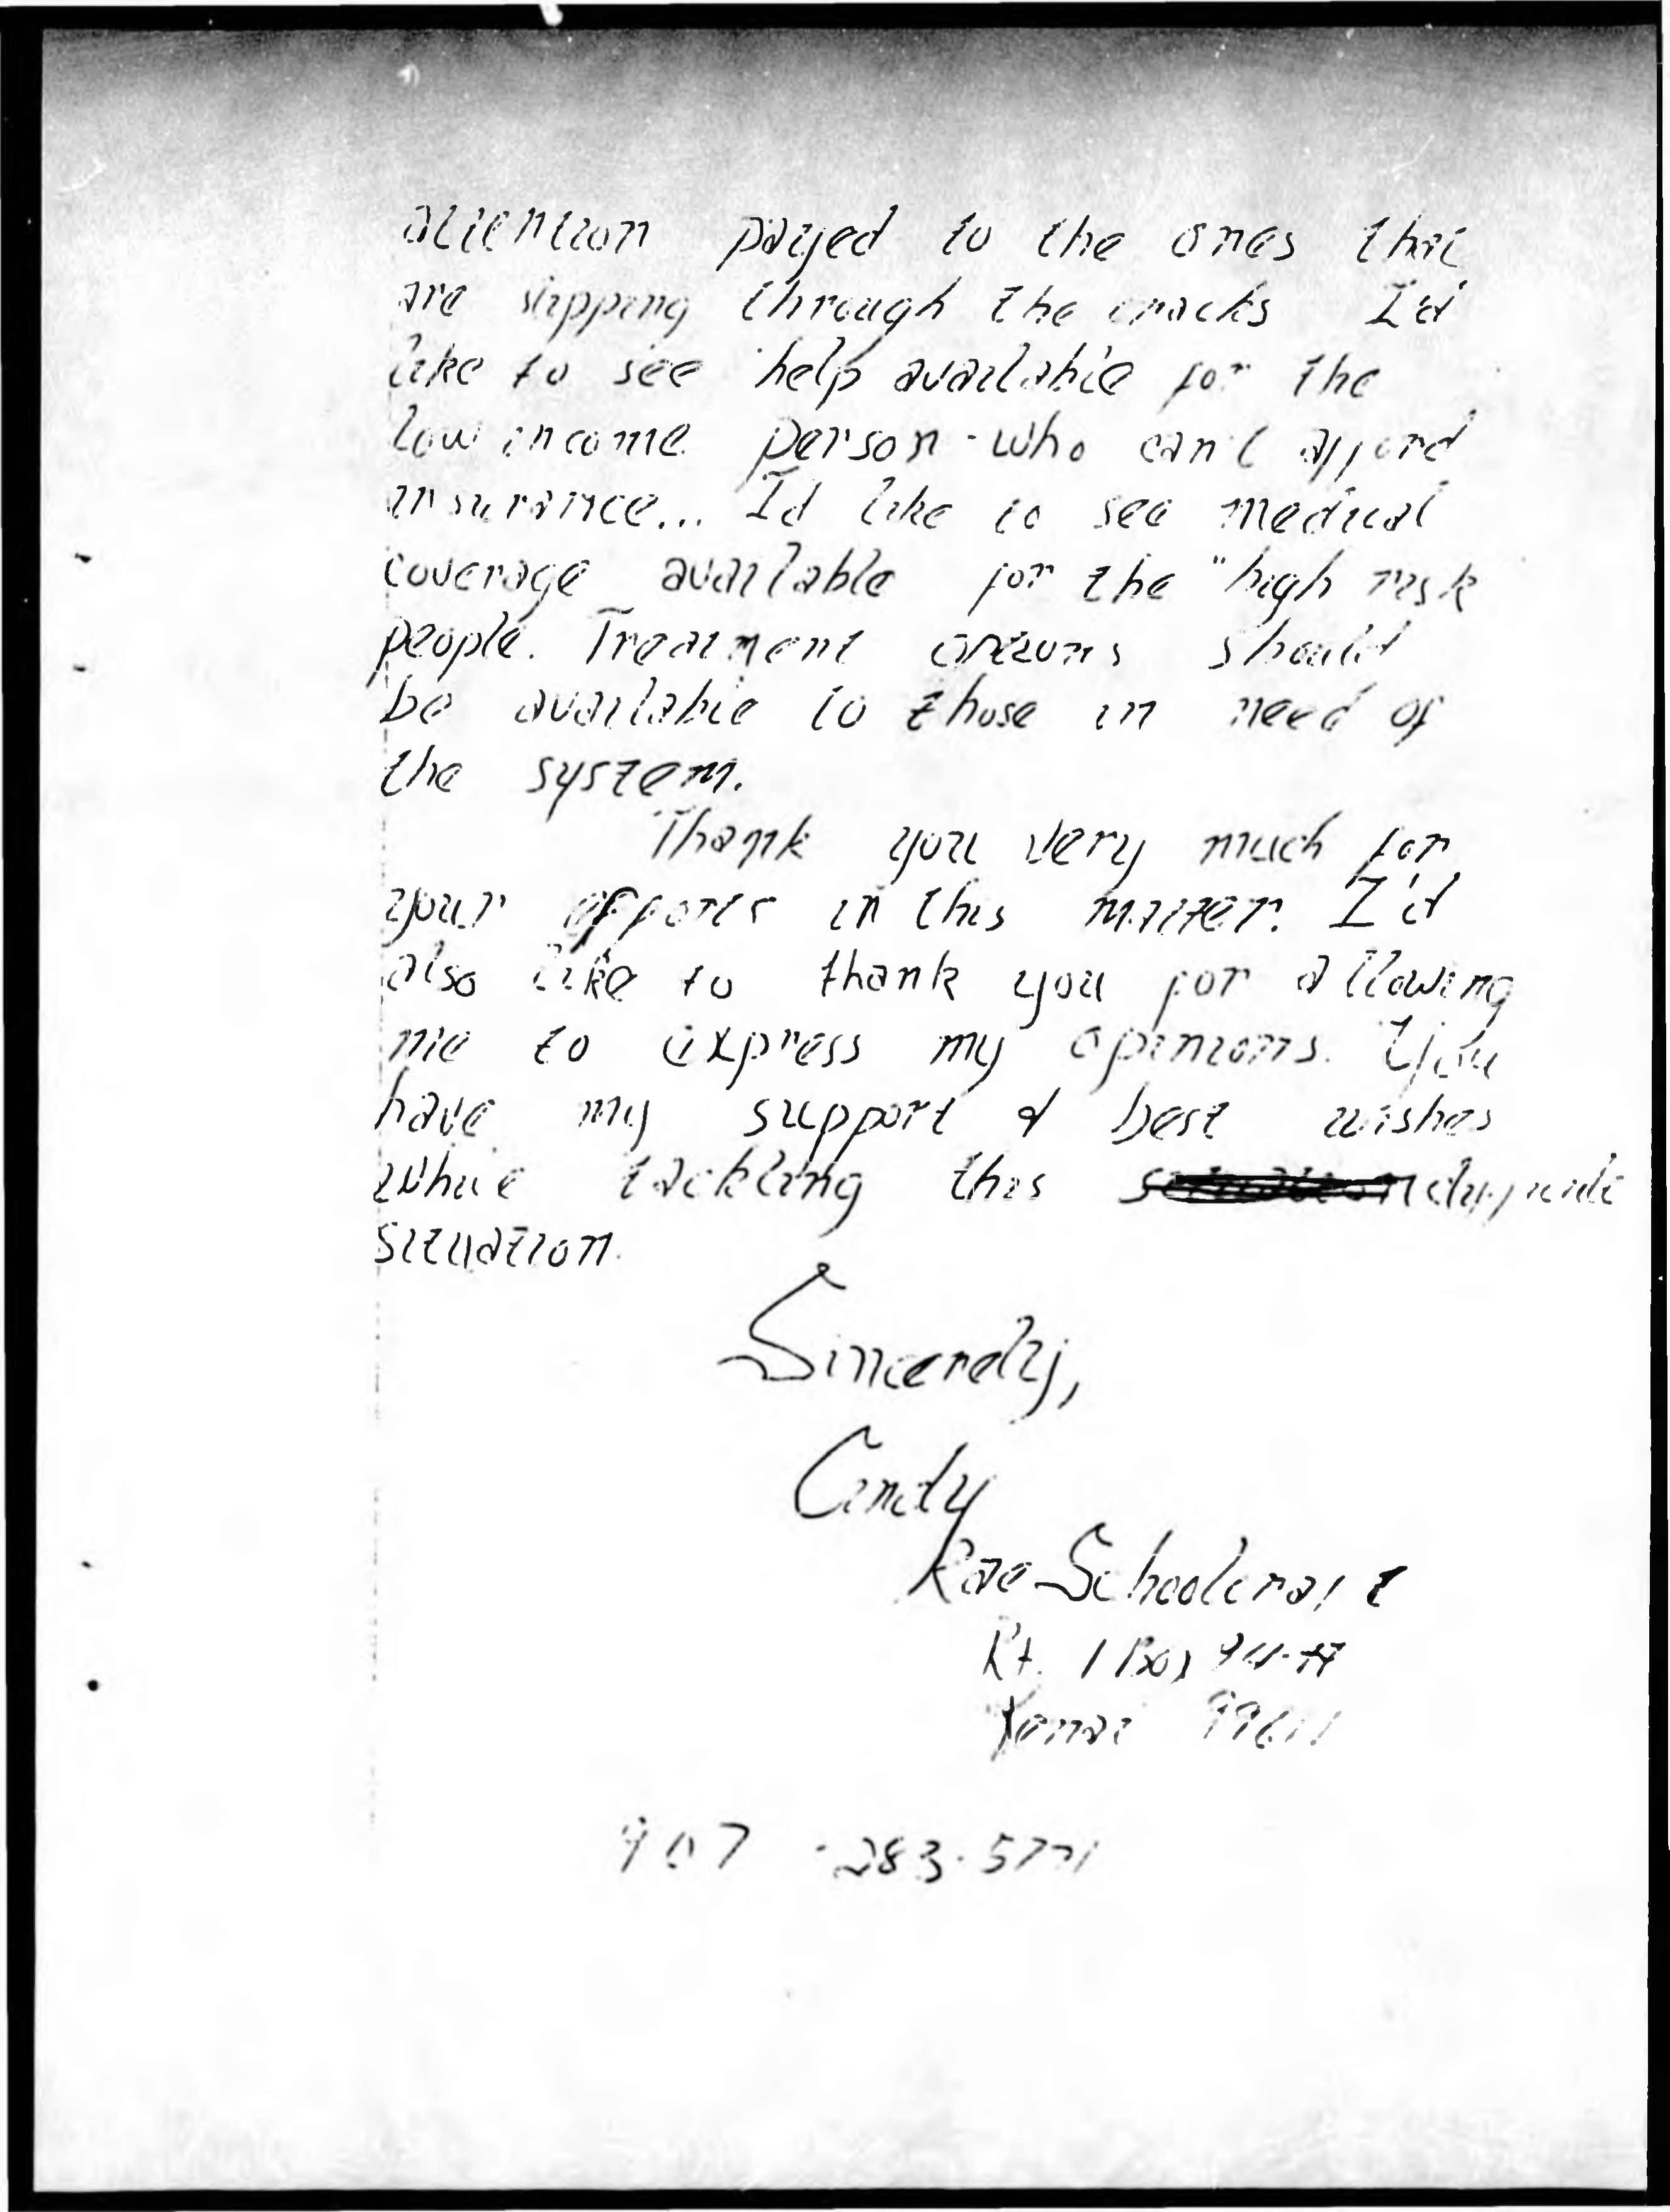 attention payed to the ones that
are slipping through the cracks I'd
like to see help available for the
low income person - who can't afford
insurance... I'd like to see medical
coverage available for the "high risk
people. Treatment options should
be available to those in need of
the system.
Thank you very much for
your efforts in this matter. I'd
also like to thank you for allowing
me to express my opinions. You
have my support & best wishes
while tackling this situation difficult
situation.
Sincerely,
Cindy
Rae Schoolcraft
Rt. 1 Box
Kenai 99611
907-283-